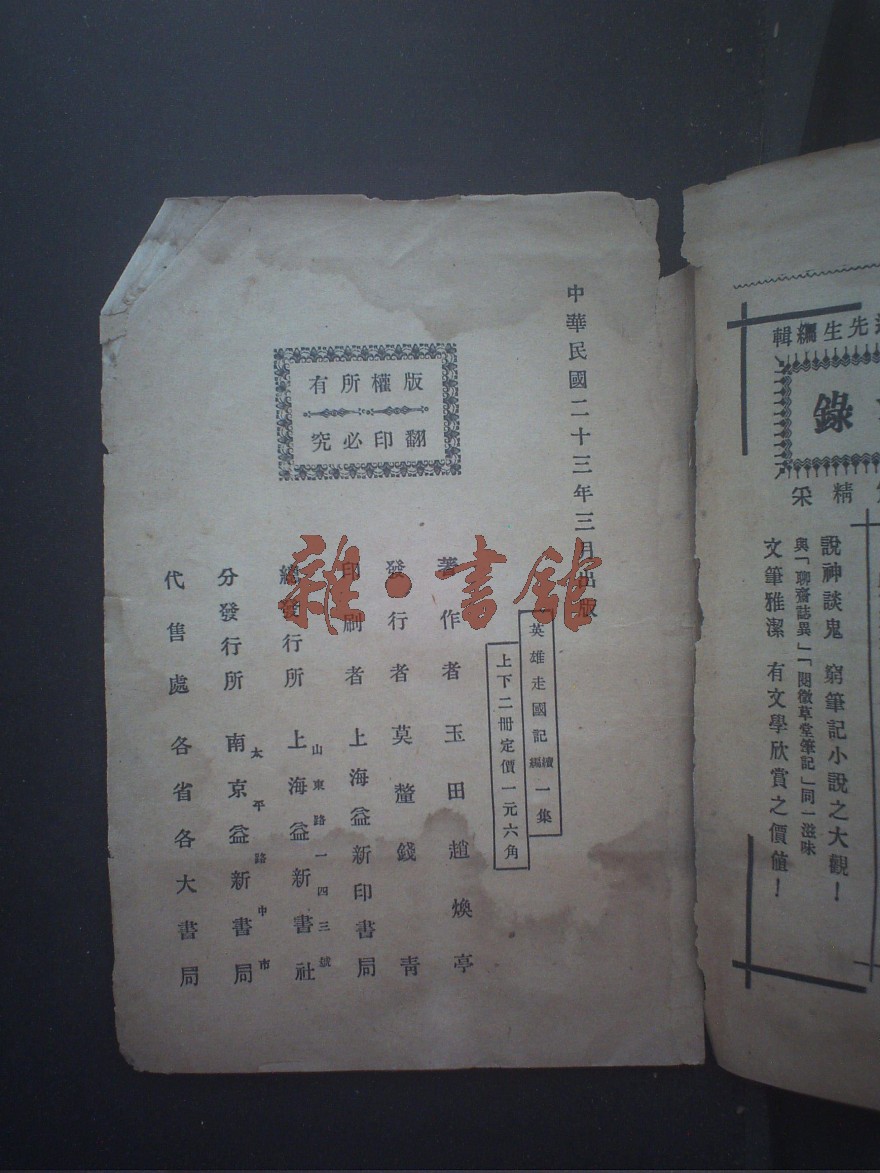 中華民國二十三年三月出版
英雄走國記續編一集
上下二冊定價一元六角
版權所有
翻印必究
著作者 玉田趙煥亭
發行者 莫釐錢青
印刷者 上海益新印書局
總發行所 上海益新書社
山東路一四三號
分發行所 南京益新書局
太平路中市
代售處 各省各大書局
雜·書館
先生編輯
錄
精采
說神談鬼 窮筆記小說之大觀！
與「聊齋誌異」「閱微草堂筆記」同一滋味
文筆雅潔 有文學欣賞之價值！